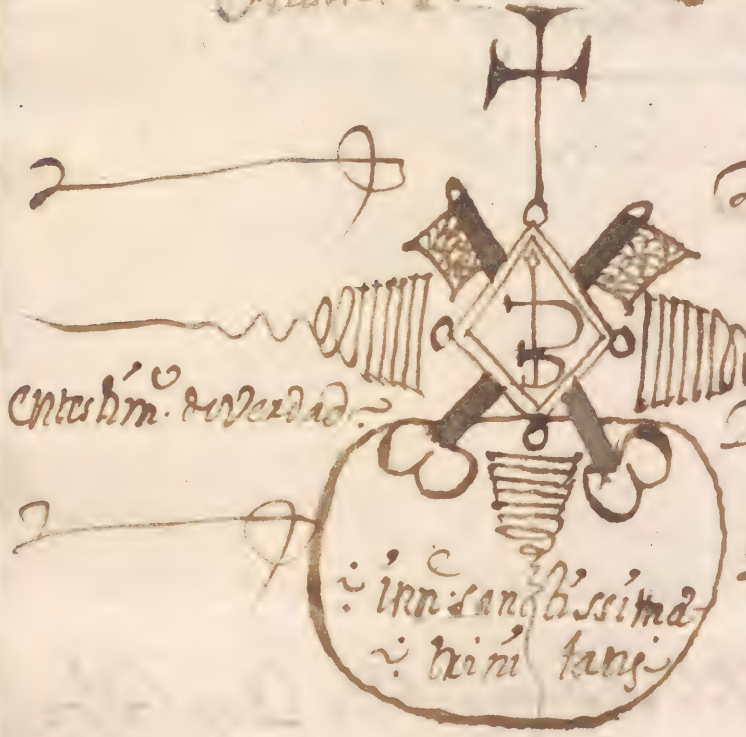 en testim.º de verdad
inn.e sanctissima
trini tatis